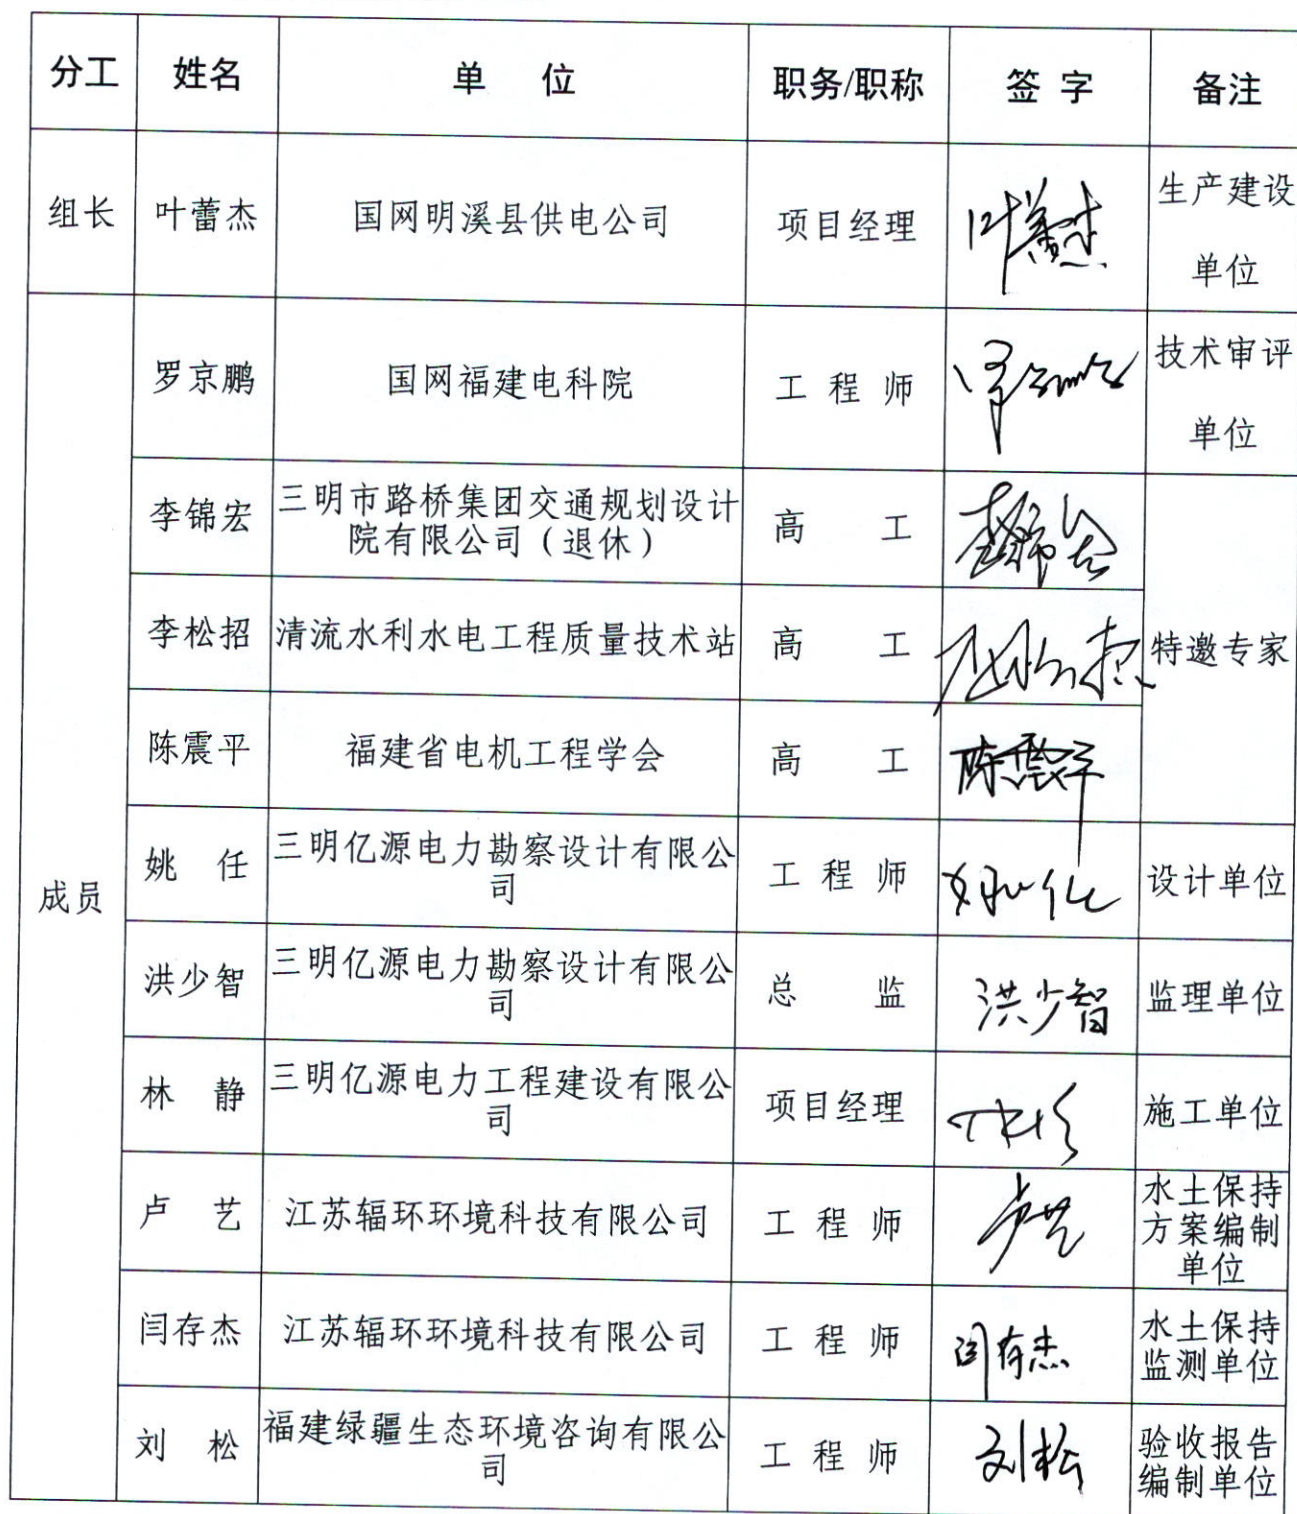 分工 姓名 单 位 职务/职称 签 字 备注
组长 叶蕾杰 国网明溪县供电公司 项目经理 叶蕾杰 生产建设
单位
成员
罗京鹏 国网福建电科院 工 程 师 技术审评
单位
李锦宏 三明市路桥集团交通规划设计
院有限公司（退休） 高 工
特邀专家
李松招 清流水利水电工程质量技术站 高 工
陈震平 福建省电机工程学会 高 工 陈震平
姚 任 三明亿源电力勘察设计有限公
司 工 程 师 设计单位
洪少智 三明亿源电力勘察设计有限公
司 总 监 洪少智 监理单位
林 静 三明亿源电力工程建设有限公
司 项目经理 施工单位
卢 艺 江苏辐环环境科技有限公司 工 程 师 卢艺 水土保持
方案编制
单位
闫存杰 江苏辐环环境科技有限公司 工 程 师 闫存杰 水土保持
监测单位
刘 松 福建绿疆生态环境咨询有限公
司 工 程 师 刘松 验收报告
编制单位